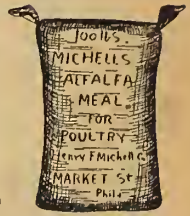 100 lbs.
MICHELLS
ALFALFA
MEAL
FOR
POULTRY
Henry F Michell Co.
MARKET St
Phila